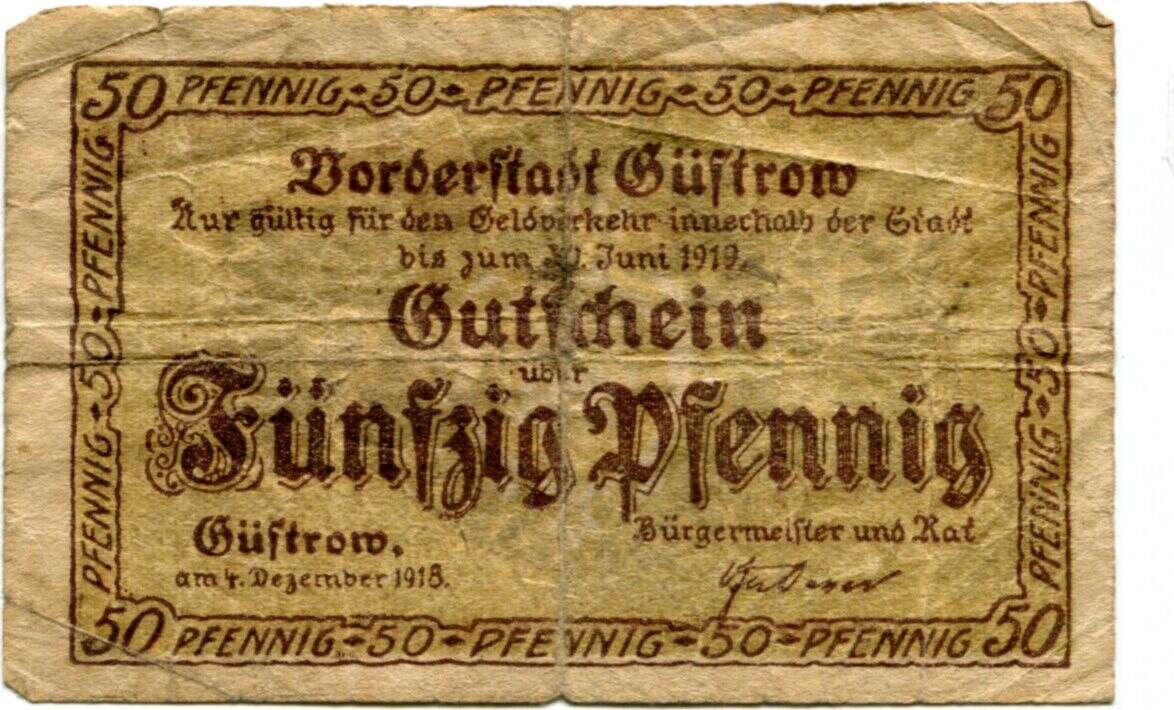 50 PFENNIG 50 PFENNIG 50 PFENNIG 50
PFENNIG 50 PFENNIG
Vorderstadt Güstrow
Nur gültig für den Geldverkehr innerhalb der Stadt
bis zum Juni 1919.
Gutschein
über
Fünfzig Pfennig
Güstrow,
am 4. Dezember 1918.
Bürgermeister und Rat
PFENNIG 50 PFENNIG
50 PFENNIG 50 PFENNIG 50 PFENNIG 50